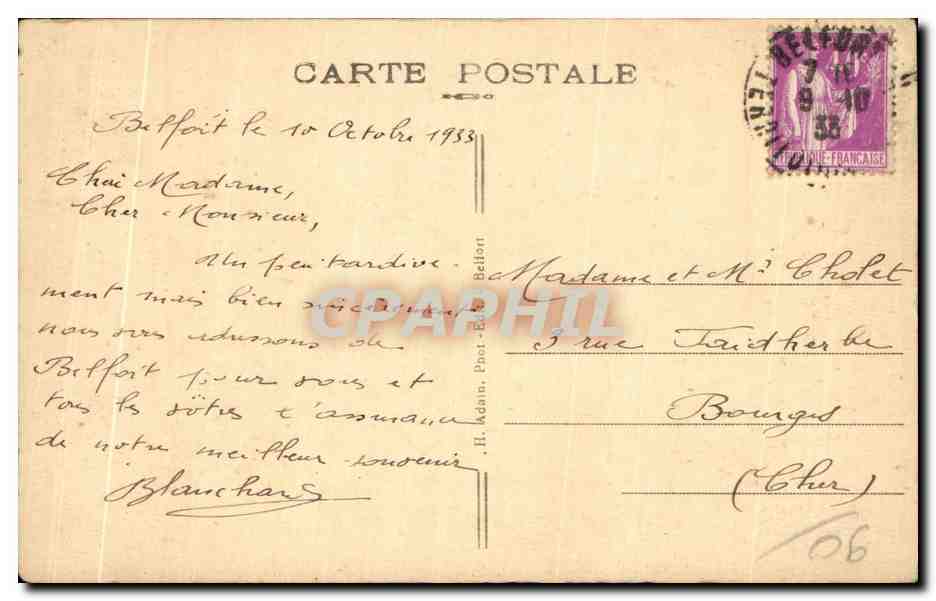 CARTE POSTALE
Belfort le 10 Octobre 1933
Chère Madame,
Cher Monsieur,
Un peu tardive-
ment mais bien sincèrement
nous vous adressons de
Belfort pour vous et
tous les vôtres l'assurance
de notre meilleur souvenir
Blanchard
H. Adain, Phot.-Edit. Belfort
Madame et Mr Cholet
3 rue Faidherbe
Bourges
(Cher)
BELFORT
7 H
9-10
33
TERRIT
RÉPUBLIQUE-FRANÇAISE
CPAPHIL
/06